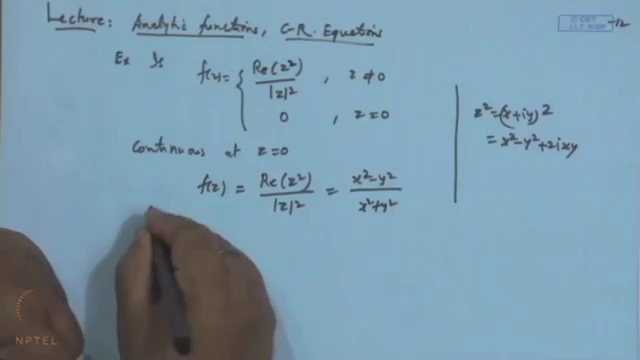 Lecture: Analytic functions, C-R. Equations
© CET
I.I.T. KGP
-12
Ex Is f(z) = { Re(z²) / |z|² , z ≠ 0
0 , z = 0
Continuous at z=0
f(z) = Re(z²) / |z|² = x²-y² / x²+y²
z² = (x+iy)2
= x²-y²+2ixy
NPTEL